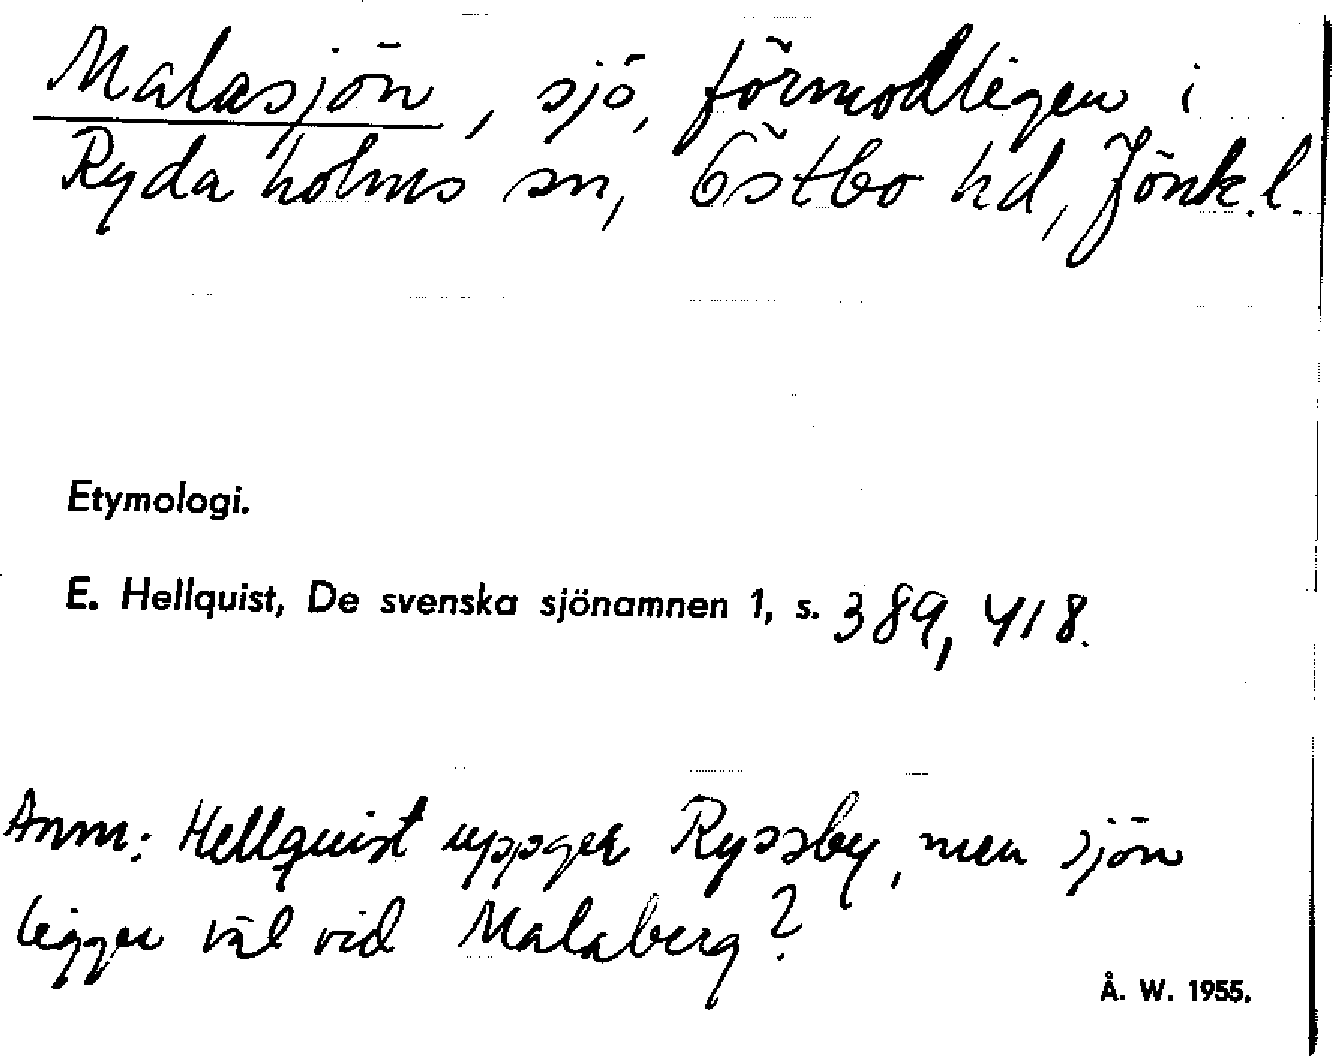 Malasjön, sjö, förmodligen i
Rydaholms sn, Östbo hd, Jönk. l.
Etymologi.
E. Hellquist, De svenska sjönamnen 1, s. 389, 418.
Anm: Hellquist uppger Ryssby, men sjön
ligger väl vid Malaberg?
Å. W. 1955.